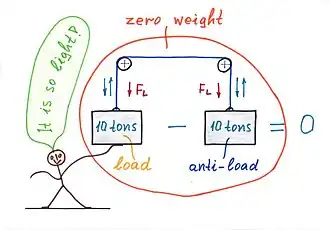 zero weight
It is so light?
F_L
F_L
10 tons − 10 tons = 0
load
anti-load